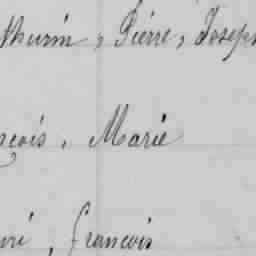 thurin, Pierre, Joseph
nçois, Marie
, françois